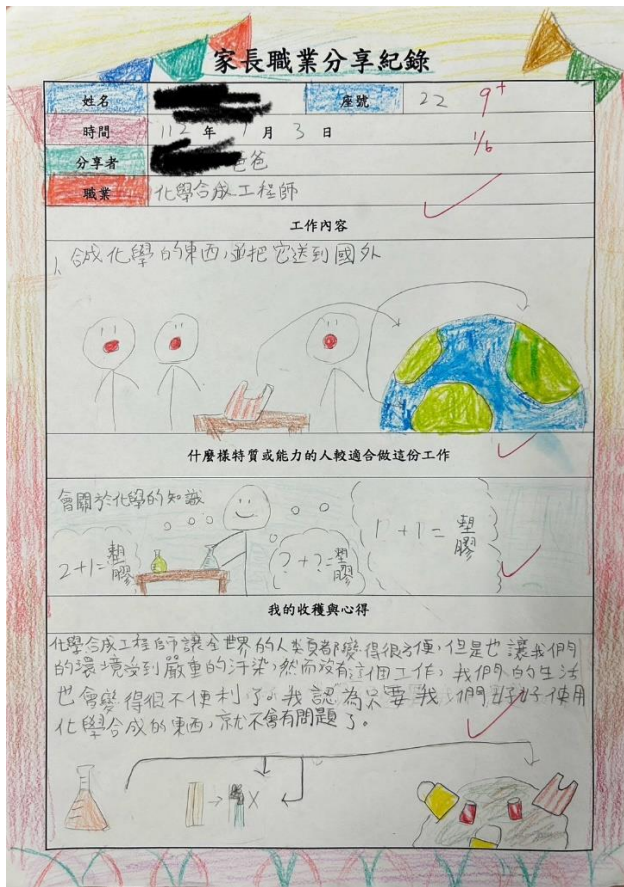 家長職業分享紀錄
姓名 座號 22 9+
時間 112年1月3日 1/6
分享者 爸爸
職業 化學合成工程師
工作內容
1、合成化學的東西,並把它送到國外
什麼樣特質或能力的人較適合做這份工作
會關於化學的知識
2+1=塑膠
?+?=塑膠
1+1=塑膠
我的收穫與心得
化學合成工程師讓全世界的人類都變得很方便,但是也讓我們
的環境受到嚴重的汙染,然而沒有這個工作,我們的生活
也會變得很不便利了。我認為只要我們好好使用
化學合成的東西,就不會有問題了。